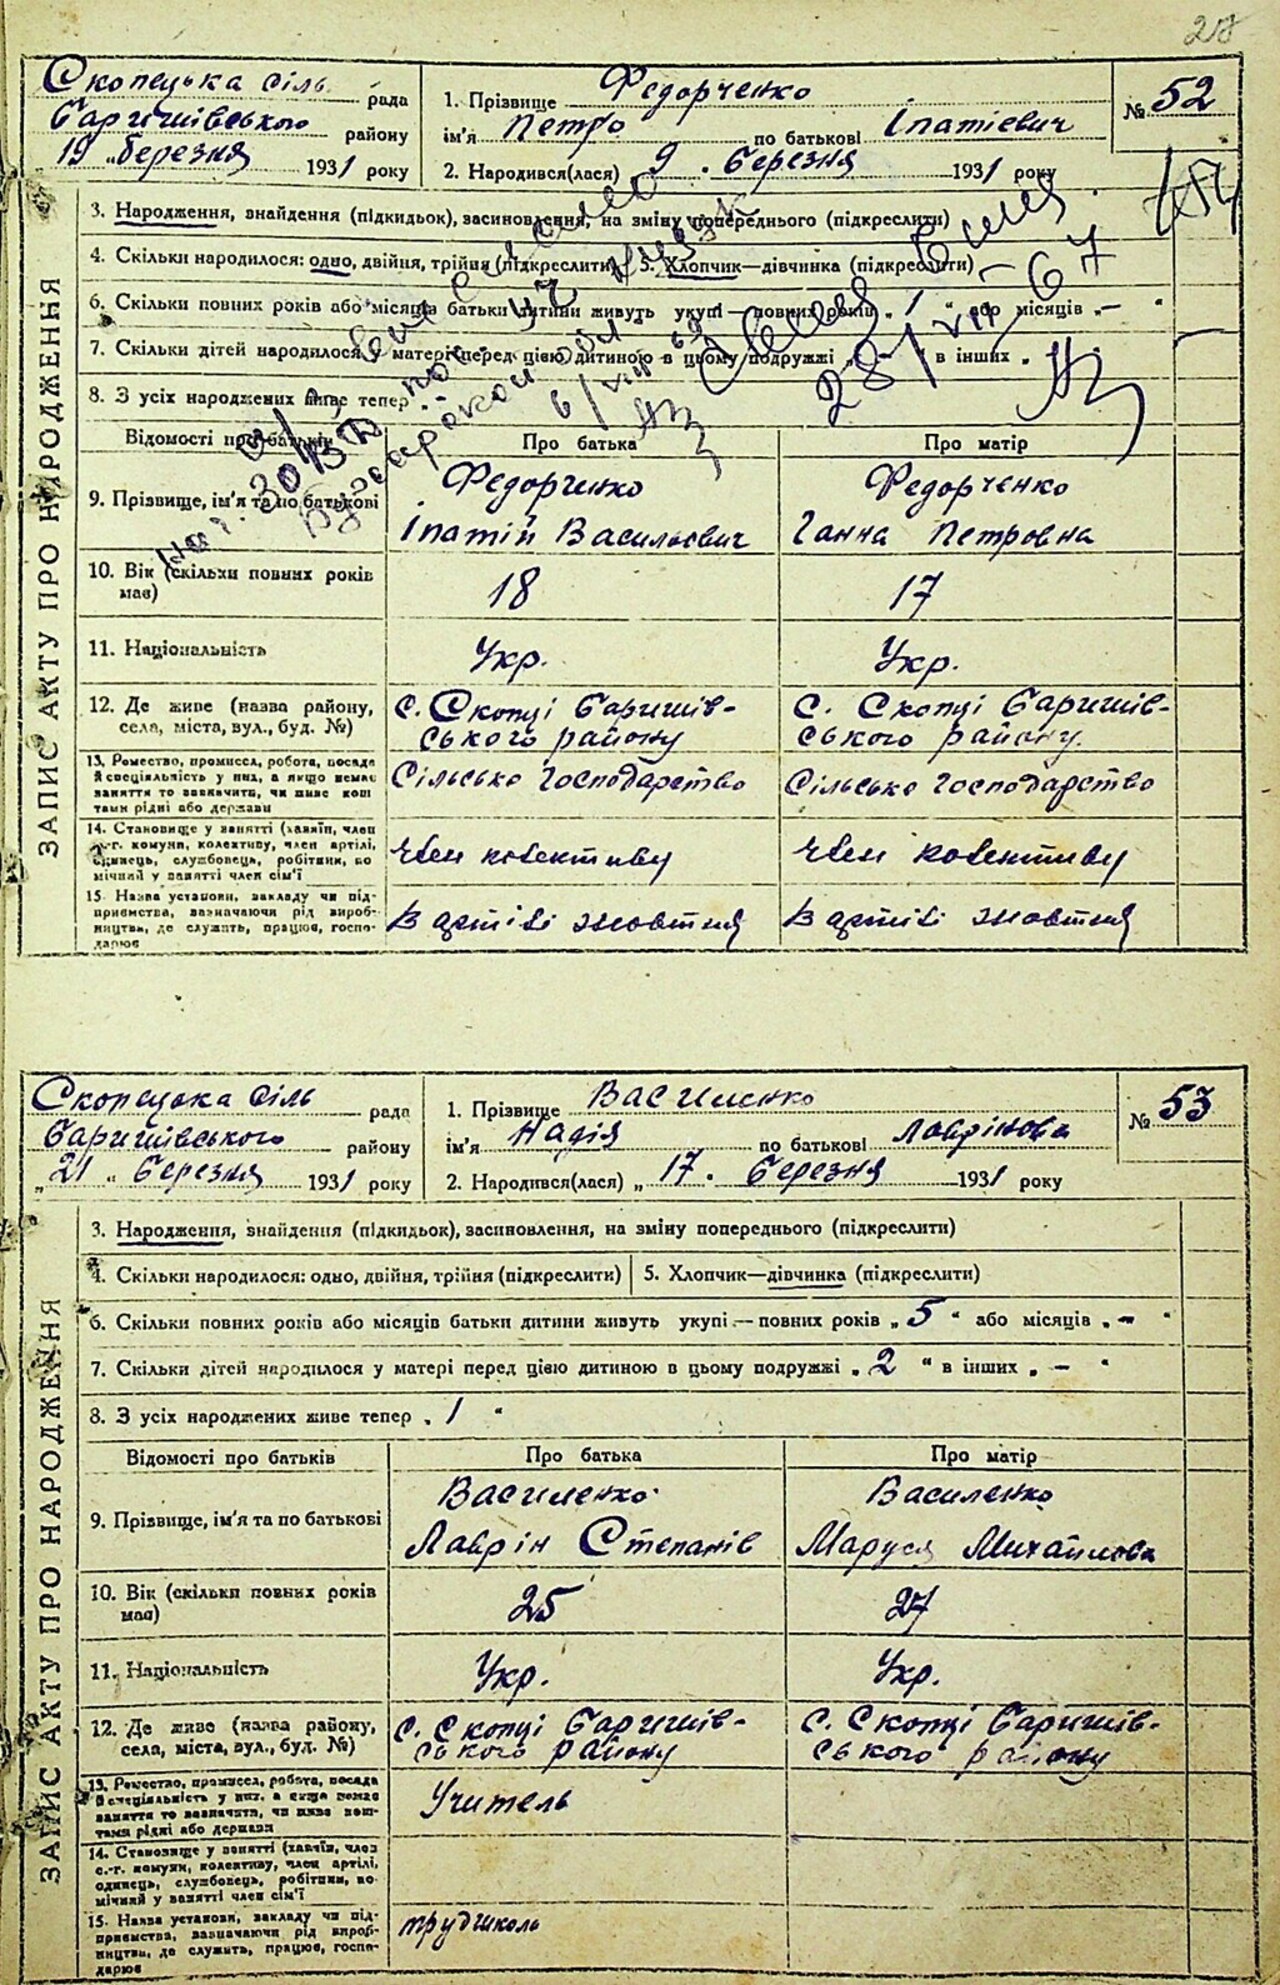 27
Скопецька сіль рада
Баришівського району
19 „ березня 1931 року
1. Прізвище Федорченко
ім'я Петро по батькові Іпатієвич
2. Народився(лася) 9 . березня 1931 року
№ 52
ЗАПИС АКТУ ПРО НАРОДЖЕННЯ
3. Народження, знайдення (підкидьок), засиновлення, на зміну попереднього (підкреслити)
4. Скільки народилося: одно, двійня, трійня (підкреслити) 5. Хлопчик—дівчинка (підкреслити)
6. Скільки повних років або місяців батьки дитини живуть укупі — повних років „ 1 “ або місяців „ — “
7. Скільки дітей народилося у матері перед цією дитиною в цьому подружжі „ — “ в інших „
8. З усіх народжених живе тепер
28/VII – 67
6/VIII 69
Відомості про батьків Про батька Про матір
9. Прізвище, ім'я та по батькові
Федорченко Федорченко
Іпатій Васильович Ганна Петровна
10. Вік (скільки повних років має) 18 17
11. Національність Укр. Укр.
12. Де живе (назва району, села, міста, вул., буд. №)
с. Скопці Баришів- с. Скопці Баришів-
ського району ського району.
13. Ремество, промисел, робота, посада й спеціальність у них, а якщо немає заняття то зазначити, чи живе кош тами рідні або держави
Сільське господарство Сільське господарство
14. Становище у занятті (хазяїн, член с.-г. комуни, колективу, член артілі, одинець, службовець, робітник, по мічний у занятті член сім'ї
член колективу член колективу
15. Назва установи, закладу чи під- приємства, зазначаючи рід вироб- ництва, де служить, працює, госпо- дарює
В артілі жовтня В артілі жовтня
Скопецька сіль рада
Баришівського району
„ 21 “ березня 1931 року
1. Прізвище Василенко
ім'я Надія по батькові Лаврінова
2. Народився(лася) „ 17 . березня 1931 року
№ 53
ЗАПИС АКТУ ПРО НАРОДЖЕННЯ
3. Народження, знайдення (підкидьок), засиновлення, на зміну попереднього (підкреслити)
4. Скільки народилося: одно, двійня, трійня (підкреслити) 5. Хлопчик—дівчинка (підкреслити)
6. Скільки повних років або місяців батьки дитини живуть укупі — повних років „ 5 “ або місяців „ — “
7. Скільки дітей народилося у матері перед цією дитиною в цьому подружжі „ 2 “ в інших „ — “
8. З усіх народжених живе тепер „ 1 “
Відомості про батьків Про батька Про матір
9. Прізвище, ім'я та по батькові
Василенко Василенко
Лаврін Степанів Маруся Михайлова
10. Вік (скільки повних років має) 25 27
11. Національність Укр. Укр.
12. Де живе (назва району, села, міста, вул., буд. №)
с. Скопці Баришів- с. Скопці Баришів-
ського району ського району
13. Ремество, промисел, робота, посада й спеціальність у них, а якщо немає заняття то зазначити, чи живе кош- тами рідні або держави
Учитель
14. Становище у занятті (хазяїн, член с.-г. комуни, колективу, член артілі, одинець, службовець, робітник, по- мічний у занятті член сім'ї
15. Назва установи, закладу чи під- приємства, зазначаючи рід вироб- ництва, де служить, працює, госпо- дарює
трудшкола